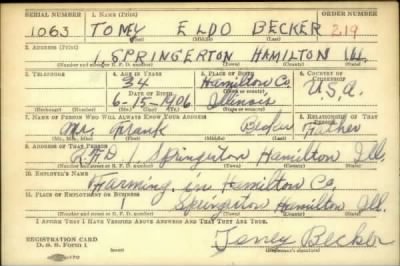 SERIAL NUMBER 1. NAME (Print)
1063 TONEY ELDO BECKER 219
(First) (Middle) (Last)
2. ADDRESS (Print)
1 SPRINGERTON HAMILTON Ill.
(Number and street or R. F. D. number) (Town) (County) (State)
3. TELEPHONE 4. AGE IN YEARS 5. PLACE OF BIRTH 6. COUNTRY OF CITIZENSHIP
34 Hamilton Co.
DATE OF BIRTH (Town or county)
6-15-1906 Illinois U.S.A.
(Exchange) (Number) (Mo.) (Day) (Yr.) (State or country)
7. NAME OF PERSON WHO WILL ALWAYS KNOW YOUR ADDRESS 8. RELATIONSHIP OF THAT PERSON
Mr. Frank Becker Father
(Mr., Mrs., Miss) (First) (Middle) (Last)
9. ADDRESS OF THAT PERSON
R.F.D. 1 Springerton Hamilton Ill.
(Number and street or R. F. D. number) (Town) (County) (State)
10. EMPLOYER'S NAME
Farming in Hamilton Co.
11. PLACE OF EMPLOYMENT OR BUSINESS
1 Springerton Hamilton Ill.
(Number and street or R. F. D. number) (Town) (County) (State)
I AFFIRM THAT I HAVE VERIFIED ABOVE ANSWERS AND THAT THEY ARE TRUE.
REGISTRATION CARD
D. S. S. Form 1 Toney Becker
(Registrant's signature)